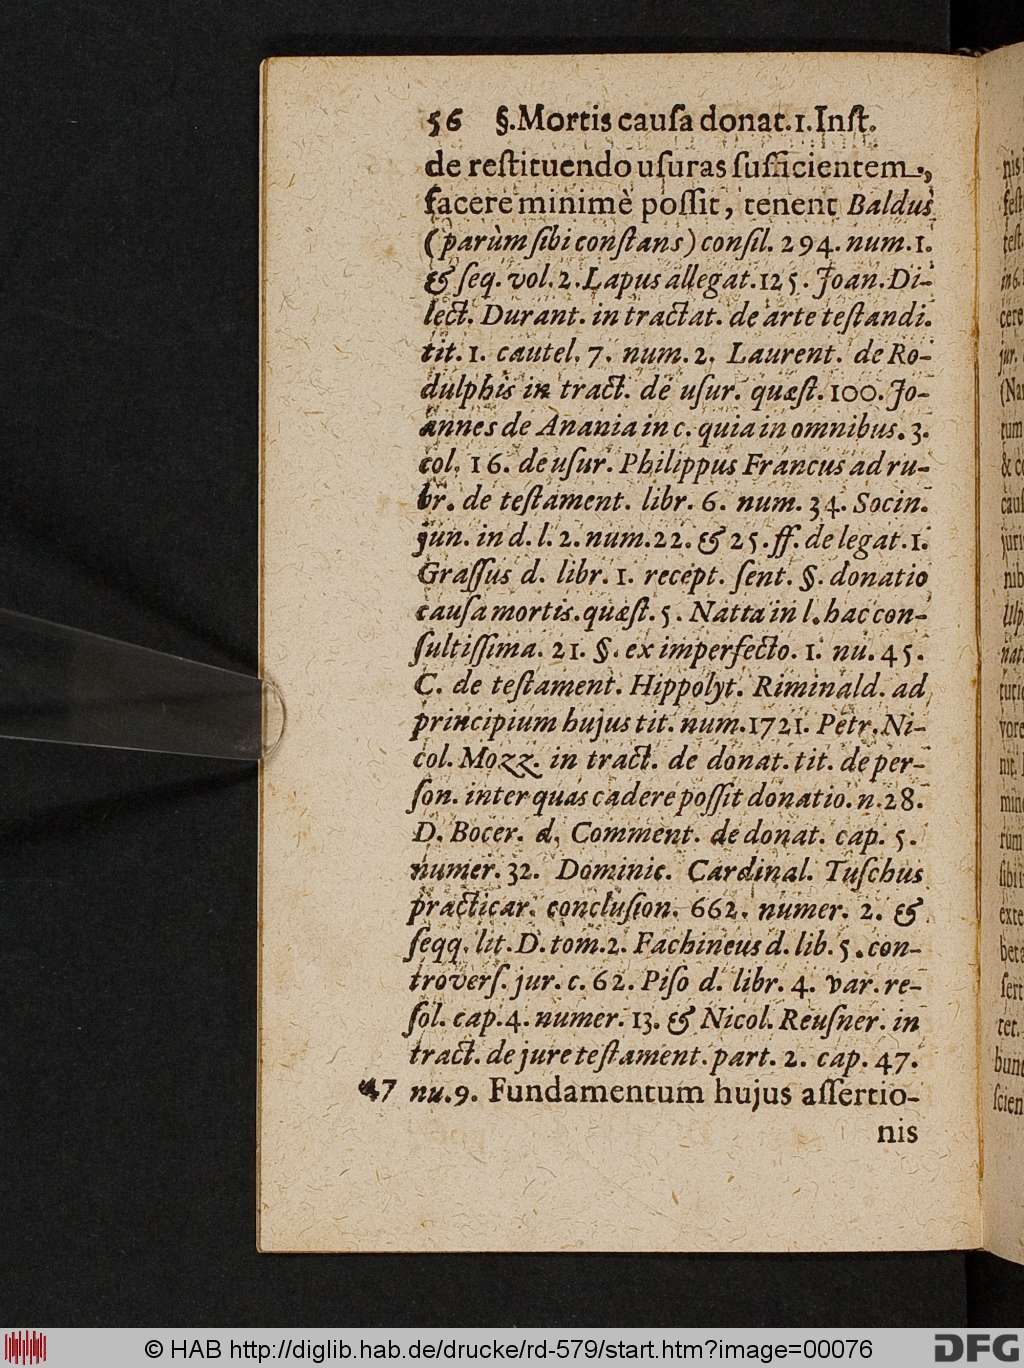 56 §. Mortis causa donat. 1. Inst.
de restituendo usuras sufficientem,
facere minimè possit, tenent Baldus
(parùm sibi constans) consil. 294. num. 1.
& seq. vol. 2. Lapus allegat. 125. Joan. Di-
lect. Durant. in tractat. de arte testandi.
tit. 1. cautel. 7. num. 2. Laurent. de Ro-
dulphis in tract. de usur. quæst. 100. Jo-
annes de Anania in c. quia in omnibus. 3.
col. 16. de usur. Philippus Francus ad ru-
br. de testament. libr. 6. num. 34. Socin.
jun. in d. l. 2. num. 22. & 25. ff. de legat. 1.
Grassus d. libr. 1. recept. sent. §. donatio
causa mortis. quæst. 5. Natta in l. hac con-
sultissima. 21. §. ex imperfecto. 1. nu. 45.
C. de testament. Hippolyt. Riminald. ad
principium hujus tit. num. 1721. Petr. Ni-
col. Mozz. in tract. de donat. tit. de per-
son. inter quas cadere possit donatio. n. 28.
D. Bocer. d. Comment. de donat. cap. 5.
numer. 32. Dominic. Cardinal. Tuschus
practicar. conclusion. 662. numer. 2. &
seqq. lit. D. tom. 2. Fachineus d. lib. 5. con-
trovers. jur. c. 62. Piso d. libr. 4. var. re-
sol. cap. 4. numer. 13. & Nicol. Reusner. in
tract. de jure testament. part. 2. cap. 47.
47 nu. 9. Fundamentum hujus assertio-
nis
© HAB http://diglib.hab.de/drucke/rd-579/start.htm?image=00076
DFG